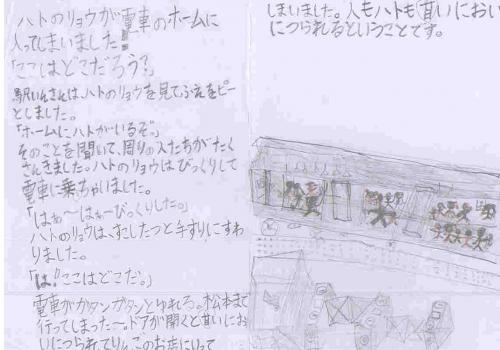 ハトのリョウが電車のホームに
入ってしまいました!
「ここはどこだろう?」
駅いんさんは、ハトのリョウを見てふえをピー
としました。
「ホームにハトがいるぞ。」
そのことを聞いて、周りの人たちがたく
さんきました。ハトのリョウはびっくりして
電車に乗ちゃいました。
「はぁ〜はぁ〜びっくりした。」
ハトのリョウは、すこしたつと手すりにすわ
りました。
「は!ここはどこだ。」
電車がガタンガタンとゆれる。松本まで
行ってしまった〜。ドアが開くと甘いにお
いにつられてりんごのお店にいって
しまいました。人もハトも甘いにおい
につられるということです。